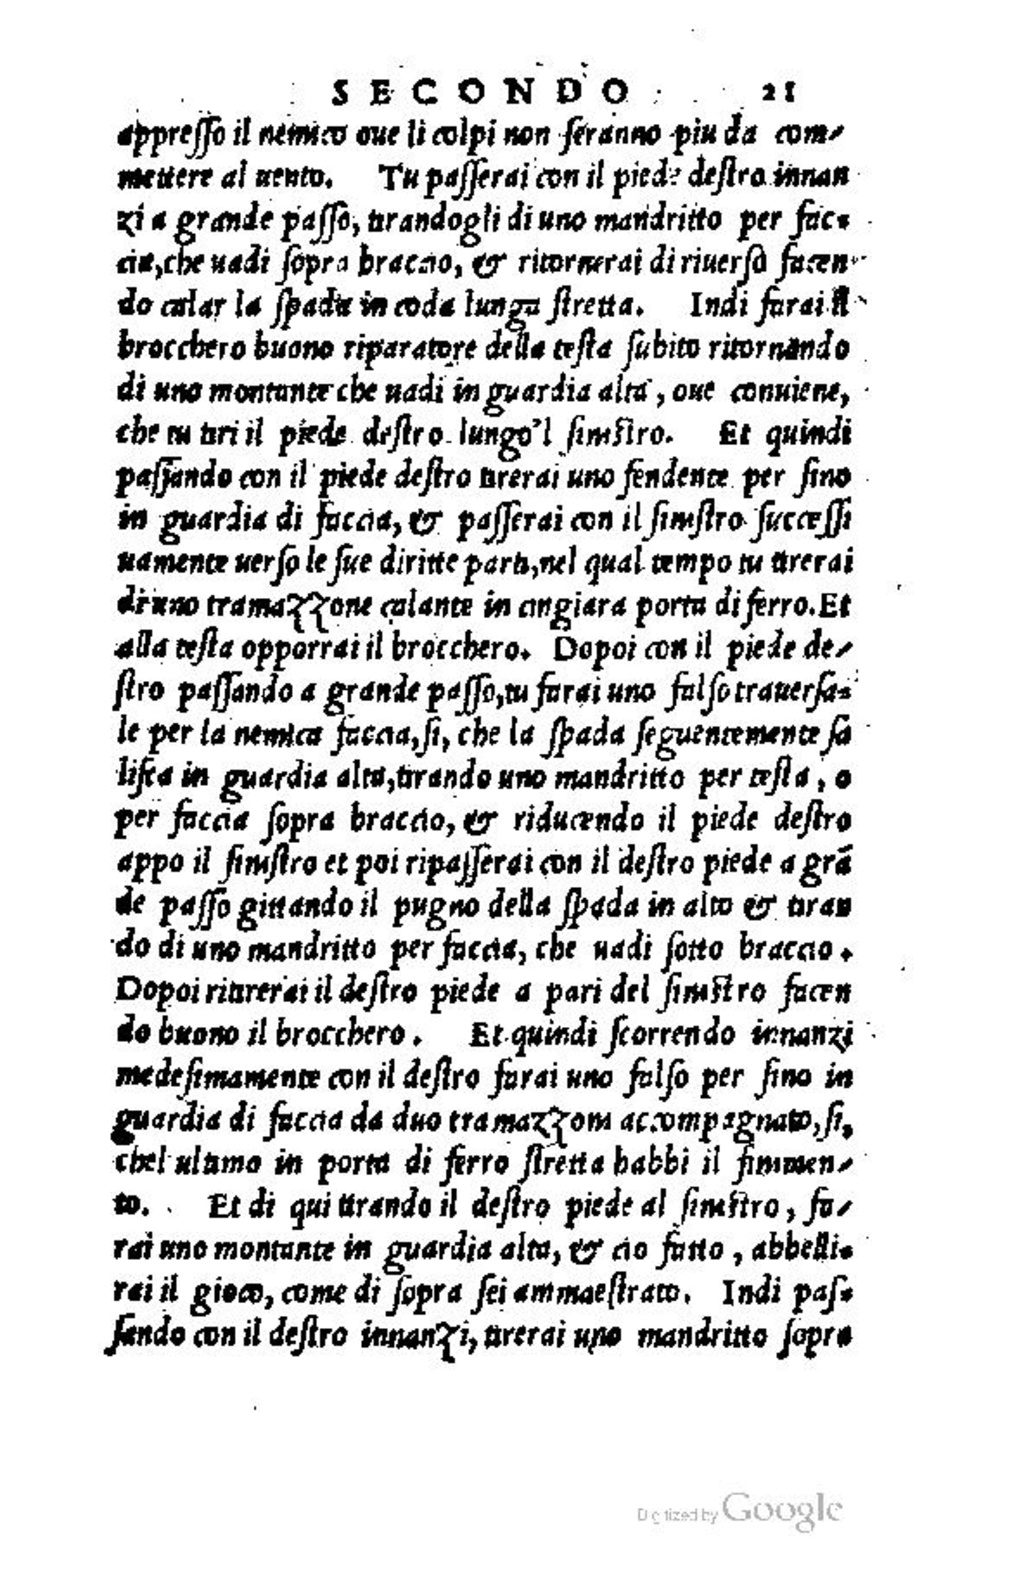 SECONDO 21
appresso il nemico oue li colpi non seranno piu da com-
mettere al uento. Tu passerai con il piede destro innan
zi a grande passo, tirandogli di uno mandritto per fac-
cia, che uadi sopra braccio, & ritornerai di riuerso facen-
do calar la spada in coda lunga stretta. Indi farai il
brocchero buono riparatore della testa subito ritornando
di uno montante che uadi in guardia alta, oue conuiene,
che tu tiri il piede destro lungo'l sinistro. Et quindi
passando con il piede destro tirerai uno fendente per fino
in guardia di faccia, & passerai con il sinistro successi
uamente uerso le sue diritte parti, nel qual tempo tu tirerai
di uno tramazzone calante in cingiara porta di ferro. Et
alla testa opporrai il brocchero. Dopoi con il piede de-
stro passando a grande passo, tu farai uno falso trauersa-
le per la nemica faccia, si, che la spada seguentemente sa
lisca in guardia alta, tirando uno mandritto per testa, o
per faccia sopra braccio, & riducendo il piede destro
appo il sinistro et poi ripasserai con il destro piede a grā
de passo gittando il pugno della spada in alto & tiran
do di uno mandritto per faccia, che uadi sotto braccio.
Dopoi ritirerai il destro piede a pari del sinistro facen
do buono il brocchero. Et quindi scorrendo innanzi
medesimamente con il destro farai uno falso per fino in
guardia di faccia da duo tramazzoni accompagnato, si,
chel ultimo in porta di ferro stretta habbi il finimen-
to. Et di qui tirando il destro piede al sinistro, fa-
rai uno montante in guardia alta, & cio fatto, abbelli-
rai il gioco, come di sopra sei ammaestrato. Indi pas-
sando con il destro innanzi, tirerai uno mandritto sopra
Digitized by Google